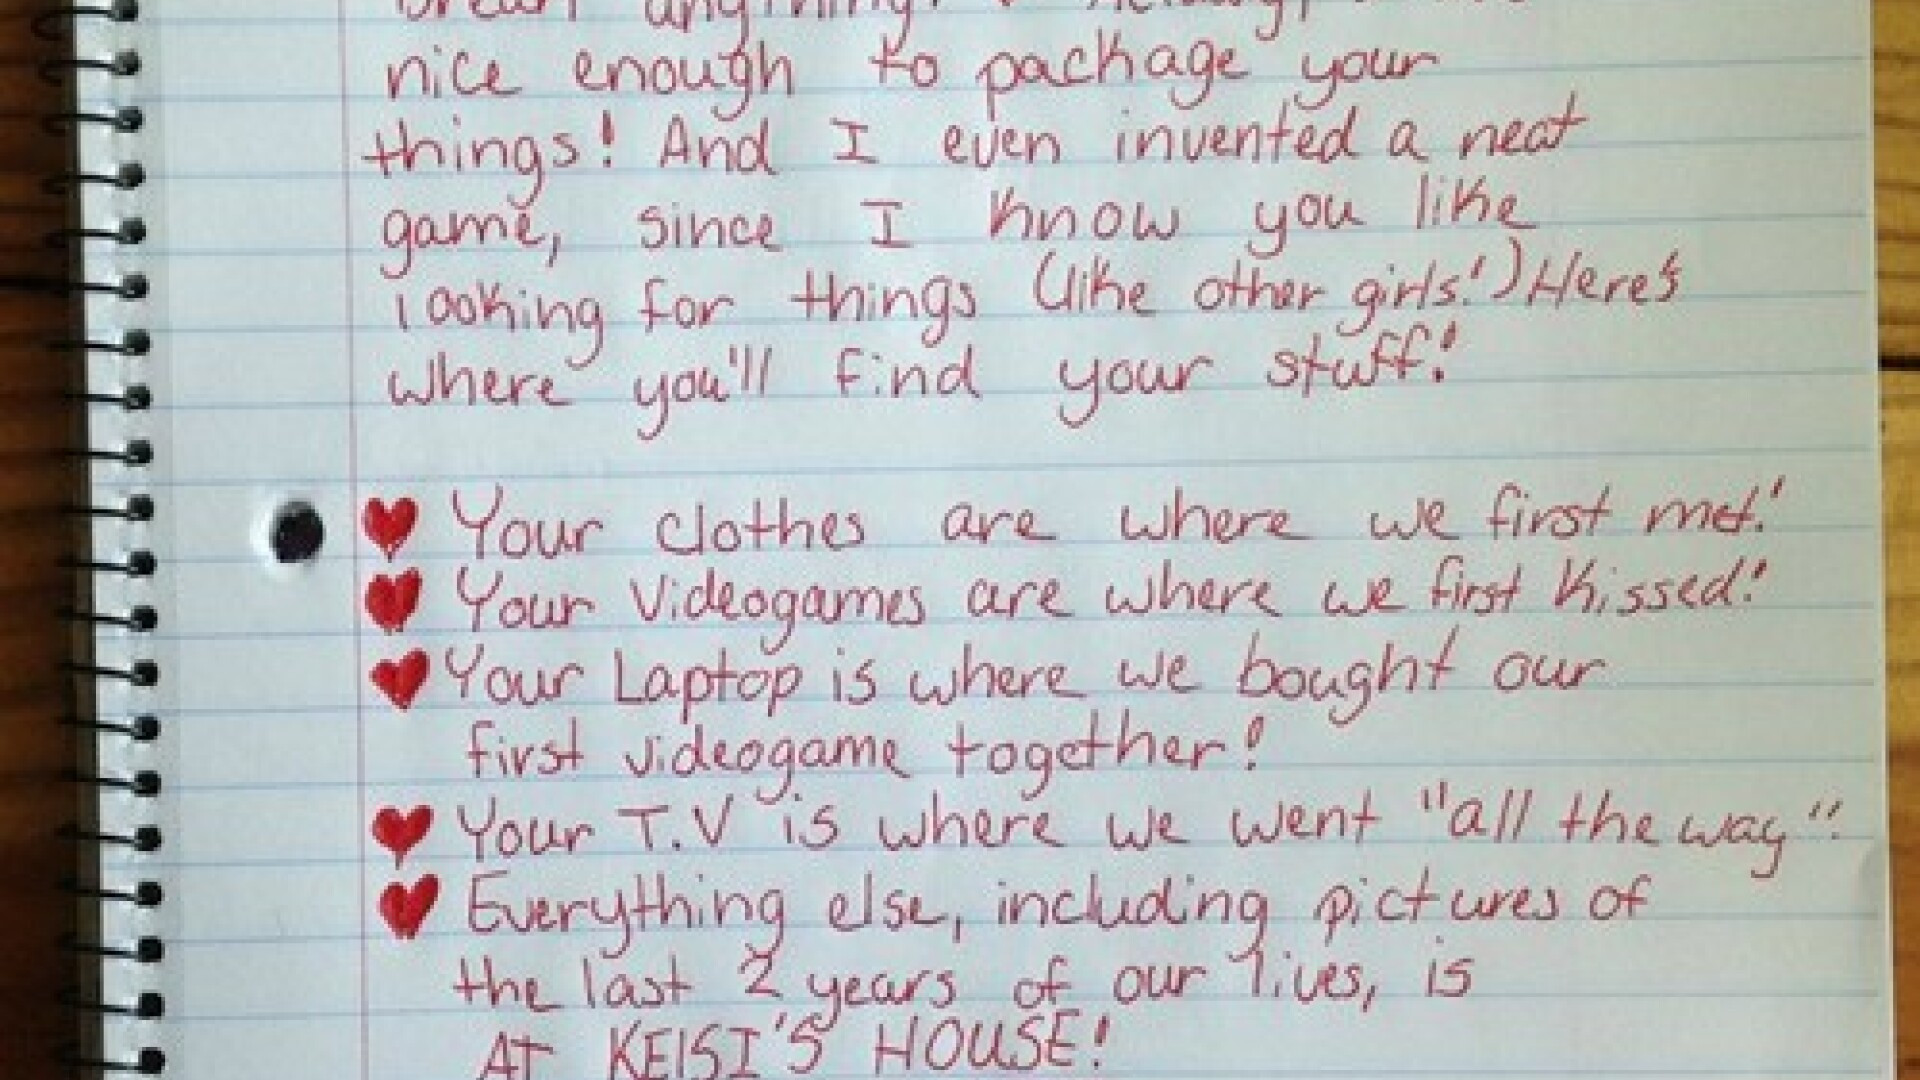 anything!
nice enough to package your
things! And I even invented a neat
game, since I know you like
looking for things (like other girls!) Here's
where you'll find your stuff!
Your clothes are where we first met!
Your Videogames are where we first kissed!
Your Laptop is where we bought our
first videogame together!
Your T.V is where we went "all the way"!
Everything else, including pictures of
the last 2 years of our lives, is
AT KEISI'S HOUSE!